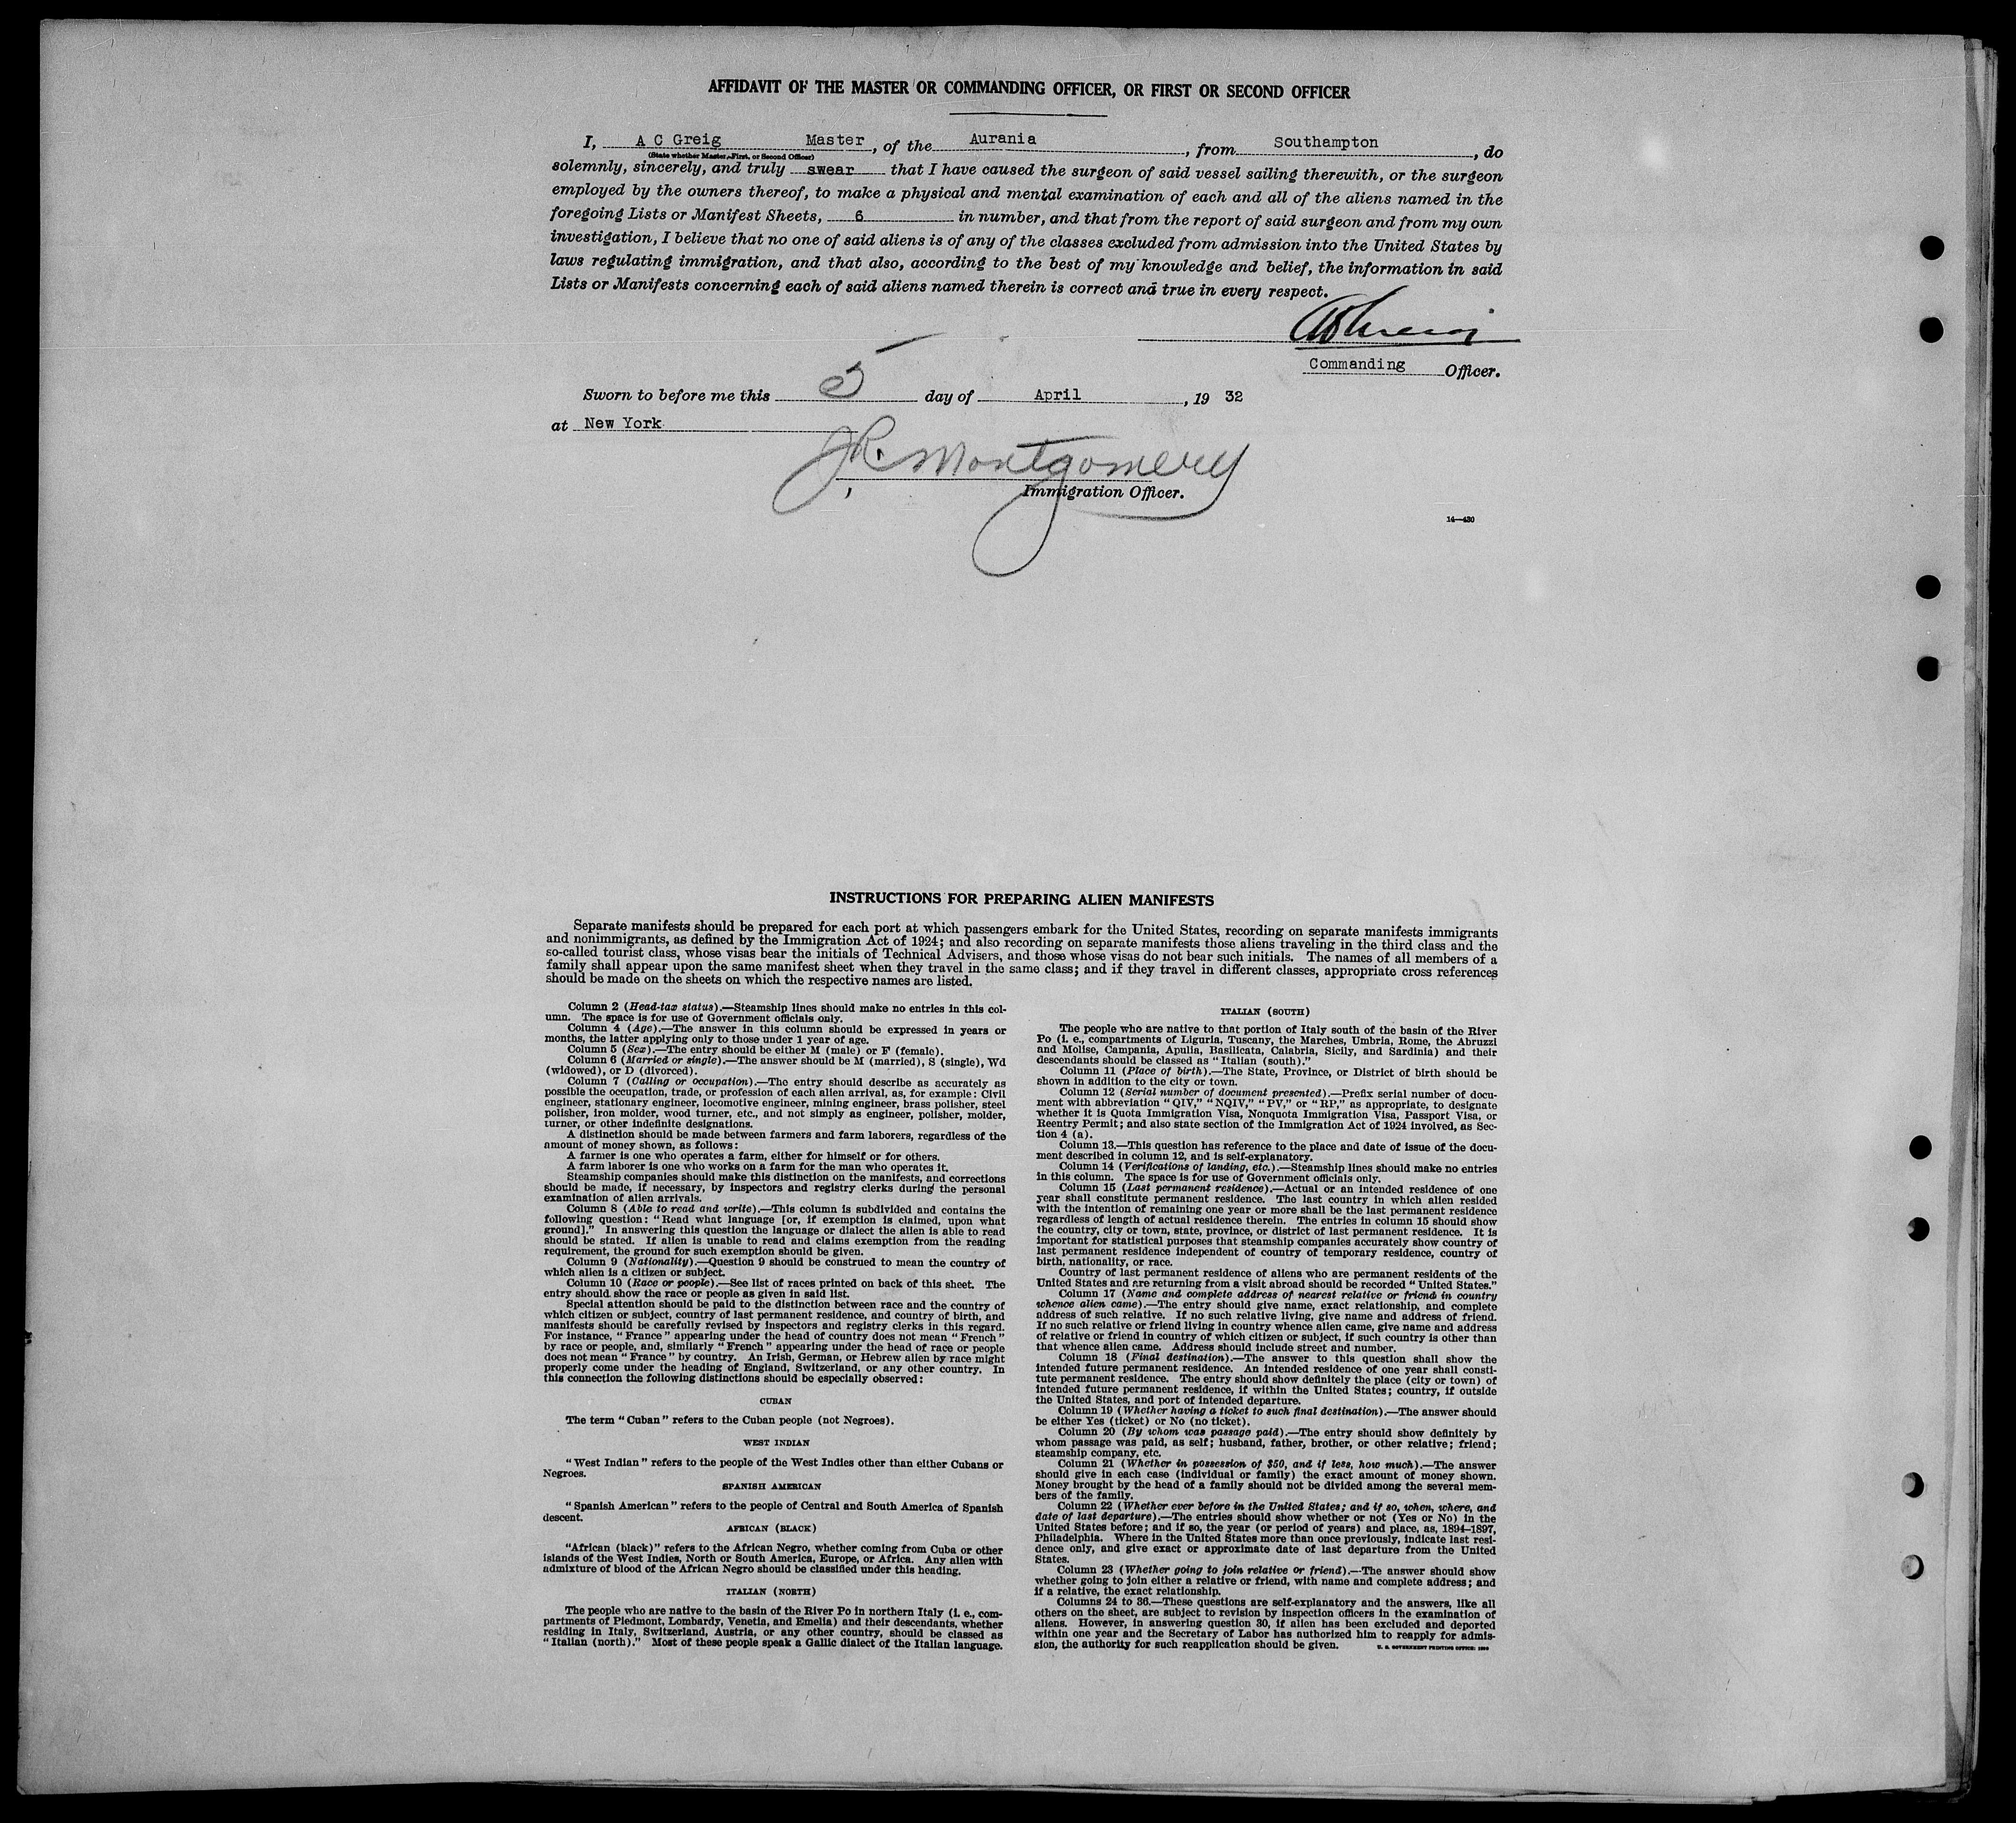 AFFIDAVIT OF THE MASTER OR COMMANDING OFFICER, OR FIRST OR SECOND OFFICER
I, A C Greig Master, of the Aurania, from Southampton, do
(State whether Master, First, or Second Officer)
solemnly, sincerely, and truly swear that I have caused the surgeon of said vessel sailing therewith, or the surgeon
employed by the owners thereof, to make a physical and mental examination of each and all of the aliens named in the
foregoing Lists or Manifest Sheets, 6 in number, and that from the report of said surgeon and from my own
investigation, I believe that no one of said aliens is of any of the classes excluded from admission into the United States by
laws regulating immigration, and that also, according to the best of my knowledge and belief, the information in said
Lists or Manifests concerning each of said aliens named therein is correct and true in every respect.
Commanding Officer.
Sworn to before me this 5 day of April, 19 32
at New York
J.R. Montgomery
Immigration Officer.
14—430
INSTRUCTIONS FOR PREPARING ALIEN MANIFESTS
Separate manifests should be prepared for each port at which passengers embark for the United States, recording on separate manifests immigrants
and nonimmigrants, as defined by the Immigration Act of 1924; and also recording on separate manifests those aliens traveling in the third class and the
so-called tourist class, whose visas bear the initials of Technical Advisers, and those whose visas do not bear such initials. The names of all members of a
family shall appear upon the same manifest sheet when they travel in the same class; and if they travel in different classes, appropriate cross references
should be made on the sheets on which the respective names are listed.
Column 2 (Head-tax status).—Steamship lines should make no entries in this col-
umn. The space is for use of Government officials only.
Column 4 (Age).—The answer in this column should be expressed in years or
months, the latter applying only to those under 1 year of age.
Column 5 (Sex).—The entry should be either M (male) or F (female).
Column 6 (Married or single).—The answer should be M (married), S (single), Wd
(widowed), or D (divorced).
Column 7 (Calling or occupation).—The entry should describe as accurately as
possible the occupation, trade, or profession of each alien arrival, as, for example: Civil
engineer, stationary engineer, locomotive engineer, mining engineer, brass polisher, steel
polisher, iron molder, wood turner, etc., and not simply as engineer, polisher, molder,
turner, or other indefinite designations.
A distinction should be made between farmers and farm laborers, regardless of the
amount of money shown, as follows:
A farmer is one who operates a farm, either for himself or for others.
A farm laborer is one who works on a farm for the man who operates it.
Steamship companies should make this distinction on the manifests, and corrections
should be made, if necessary, by inspectors and registry clerks during the personal
examination of alien arrivals.
Column 8 (Able to read and write).—This column is subdivided and contains the
following question: "Read what language [or, if exemption is claimed, upon what
ground]." In answering this question the language or dialect the alien is able to read
should be stated. If alien is unable to read and claims exemption from the reading
requirement, the ground for such exemption should be given.
Column 9 (Nationality).—Question 9 should be construed to mean the country of
which alien is a citizen or subject.
Column 10 (Race or people).—See list of races printed on back of this sheet. The
entry should show the race or people as given in said list.
Special attention should be paid to the distinction between race and the country of
which citizen or subject, country of last permanent residence, and country of birth, and
manifests should be carefully revised by inspectors and registry clerks in this regard.
For instance, "France" appearing under the head of country does not mean "French"
by race or people, and, similarly "French" appearing under the head of race or people
does not mean "France" by country. An Irish, German, or Hebrew alien by race might
properly come under the heading of England, Switzerland, or any other country. In
this connection the following distinctions should be especially observed:
CUBAN
The term "Cuban" refers to the Cuban people (not Negroes).
WEST INDIAN
"West Indian" refers to the people of the West Indies other than either Cubans or
Negroes.
SPANISH AMERICAN
"Spanish American" refers to the people of Central and South America of Spanish
descent.
AFRICAN (BLACK)
"African (black)" refers to the African Negro, whether coming from Cuba or other
islands of the West Indies, North or South America, Europe, or Africa. Any alien with
admixture of blood of the African Negro should be classified under this heading.
ITALIAN (NORTH)
The people who are native to the basin of the River Po in northern Italy (i. e., com-
partments of Piedmont, Lombardy, Venetia, and Emelia) and their descendants, whether
residing in Italy, Switzerland, Austria, or any other country, should be classed as
"Italian (north)." Most of these people speak a Gallic dialect of the Italian language.
ITALIAN (SOUTH)
The people who are native to that portion of Italy south of the basin of the River
Po (i. e., compartments of Liguria, Tuscany, the Marches, Umbria, Rome, the Abruzzi
and Molise, Campania, Apulia, Basilicata, Calabria, Sicily, and Sardinia) and their
descendants should be classed as "Italian (south)."
Column 11 (Place of birth).—The State, Province, or District of birth should be
shown in addition to the city or town.
Column 12 (Serial number of document presented).—Prefix serial number of docu-
ment with abbreviation "QIV," "NQIV," "PV," or "RP," as appropriate, to designate
whether it is Quota Immigration Visa, Nonquota Immigration Visa, Passport Visa, or
Reentry Permit; and also state section of the Immigration Act of 1924 involved, as Sec-
tion 4 (a).
Column 13.—This question has reference to the place and date of issue of the docu-
ment described in column 12, and is self-explanatory.
Column 14 (Verifications of landing, etc.).—Steamship lines should make no entries
in this column. The space is for use of Government officials only.
Column 15 (Last permanent residence).—Actual or an intended residence of one
year shall constitute permanent residence. The last country in which alien resided
with the intention of remaining one year or more shall be the last permanent residence
regardless of length of actual residence therein. The entries in column 15 should show
the country, city or town, state, province, or district of last permanent residence. It is
important for statistical purposes that steamship companies accurately show country of
last permanent residence independent of country of temporary residence, country of
birth, nationality, or race.
Country of last permanent residence of aliens who are permanent residents of the
United States and are returning from a visit abroad should be recorded "United States."
Column 17 (Name and complete address of nearest relative or friend in country
whence alien came).—The entry should give name, exact relationship, and complete
address of such relative. If no such relative living, give name and address of friend.
If no such relative or friend living in country whence alien came, give name and address
of relative or friend in country of which citizen or subject, if such country is other than
that whence alien came. Address should include street and number.
Column 18 (Final destination).—The answer to this question shall show the
intended future permanent residence. An intended residence of one year shall consti-
tute permanent residence. The entry should show definitely the place (city or town) of
intended future permanent residence, if within the United States; country, if outside
the United States, and port of intended departure.
Column 19 (Whether having a ticket to such final destination).—The answer should
be either Yes (ticket) or No (no ticket).
Column 20 (By whom was passage paid).—The entry should show definitely by
whom passage was paid, as self; husband, father, brother, or other relative; friend;
steamship company, etc.
Column 21 (Whether in possession of $50, and if less, how much).—The answer
should give in each case (individual or family) the exact amount of money shown.
Money brought by the head of a family should not be divided among the several mem-
bers of the family.
Column 22 (Whether ever before in the United States; and if so, when, where, and
date of last departure).—The entries should show whether or not (Yes or No) in the
United States before; and if so, the year (or period of years) and place, as, 1894–1897,
Philadelphia. Where in the United States more than once previously, indicate last resi-
dence only, and give exact or approximate date of last departure from the United
States.
Column 23 (Whether going to join relative or friend).—The answer should show
whether going to join either a relative or friend, with name and complete address; and
if a relative, the exact relationship.
Columns 24 to 36.—These questions are self-explanatory and the answers, like all
others on the sheet, are subject to revision by inspection officers in the examination of
aliens. However, in answering question 30, if alien has been excluded and deported
within one year and the Secretary of Labor has authorized him to reapply for admis-
sion, the authority for such reapplication should be given.
U. S. GOVERNMENT PRINTING OFFICE: